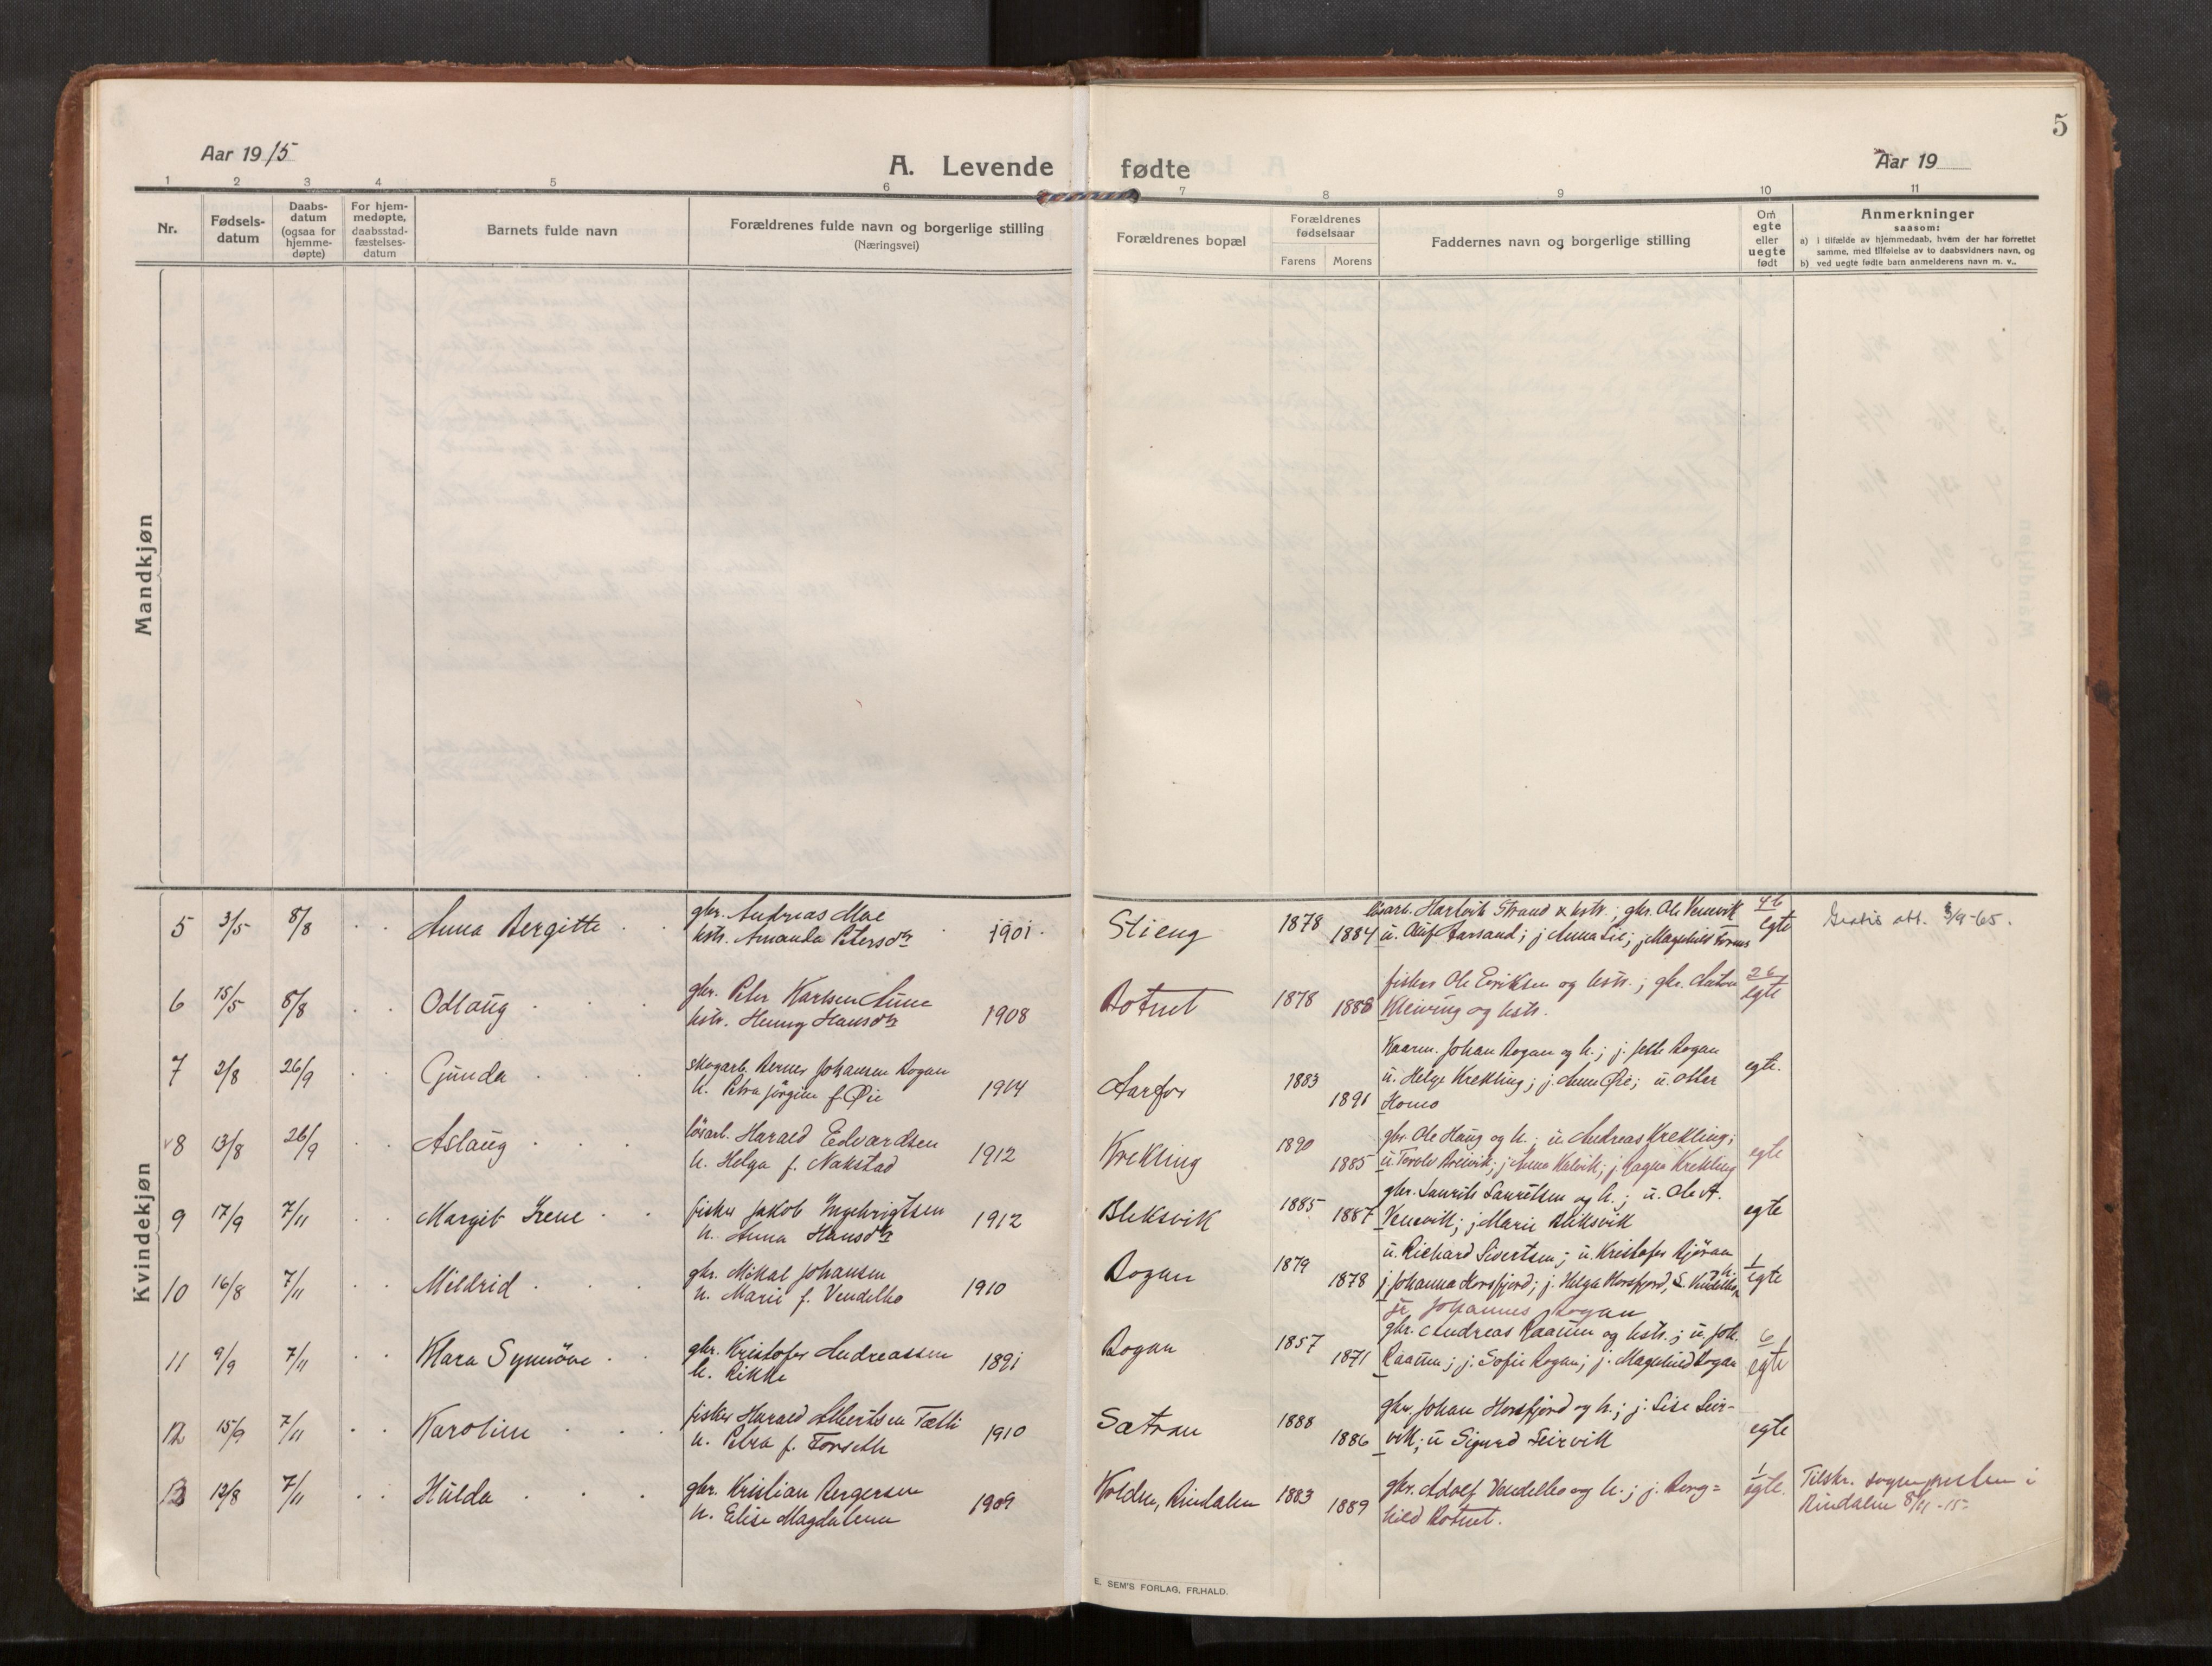 5
Aar 1915
A. Levende fødte
Aar 19
1 2 3 4 5 6 7 8 9 10 11
Nr.
Fødsels-
datum
Daabs-
datum
(ogsaa for
hjemme-
døpte)
For hjem-
medøpte,
daabsstad-
fæstelses-
datum
Barnets fulde navn
Forældrenes fulde navn og borgerlige stilling
(Næringsvei)
Forældrenes bopæl
Forældrenes
fødselsaar
Farens Morens
Faddernes navn og borgerlige stilling
Om
egte
eller
uegte
født
Anmerkninger
saasom:
a) i tilfælde av hjemmedaab, hvem der har forrettet
samme, med tilføielse av to daabsvidners navn, og
b) ved uegte fødte barn anmelderens navn m. v..
Mandkjøn
Kvindekjøn
5 3/5 8/8 Anna Bergitte gbr. Andreas Moe
kstr. Amanda Petersdtr 1901 Stieng 1878 1884
løsarb. Hartvik Strand & kstr.; gbr. Ole Venevik
u. Aarsand; j Anna Lie; j Magnhild
4 b
egte
Gratis att. 3/9-65.
6 15/5 8/8 Odlaug gbr. Peter Karlsen Aune
kstr. Henny Hansdtr 1908 Botnet 1878 1888
fisker Ole Eriksen og kstr.; gbr. Anton
Kleiving og kstr.
2 b
egte
7 2/8 26/9 Gunda skogarb. Berner Johansen Rogan
h. Petra Jørgine f. Øie 1914 Aarfor 1883 1891
Kaarm. Johan Rogan og h.; j. Rogan
u. Helge Krekling; j. Anna Øie; u. Ottar
Homo
egte.
8 13/8 26/9 Aslaug løsarb. Harald Edvardsen
h. Helga f. Nakstad 1912 Krekling 1890 1885
gbr. Ole Haug og h.; u. Andreas Krekling;
u. Breivik; j Anna Kalvik; j. Ragna Krekling
egte
9 17/9 7/11 Margit Irene fisker Jakob Ingebrigtsen
h. Anna Hansdtr 1912 Bleksvik 1885 1887
gbr. Laurits Lauritsen og h.; u. Ole A.
Venevik; j Marie Bleksvik
egte
10 16/8 7/11 Mildrid gbr. Mikal Johansen
h. Marie f. Vendelbo 1910 Rogan 1879 1878
u. Richard Sivertsen; u. Kristofer Bjøran
j. Johanna Horsfjord; j. Helga Horsfjord,
gr. Johannes Rogan
1
egte
11 9/9 7/11 Klara Synnøve gbr. Kristofer Andreassen
h. Rikke 1891 Rogan 1857 1871
gbr. Andreas Raaum og kstr.; u. Joh.
Raaum; j. Sofie Rogan; j. Magnhild Rogan
6
egte
12 15/9 7/11 Karoline fisker Harald Albertsen Tætli
h. Petra f. Forseth 1910 Sætran 1888 1886
gbr. Johan Horsfjord og h.; j. Lise Leir-
vik; u Sigurd Leirvik
egte
13 12/8 7/11 Hulda gbr. Kristian Bergersen
h. Elise Magdalena 1909 Kolden, Rindalen 1883 1889
gbr. Adolf Vendelbo og h.; j. Borg=
hild Botnet.
1
egte.
Tilskr. sognepresten i
Rindalen 8/11-15
E. SEM'S FORLAG, FR.HALD.